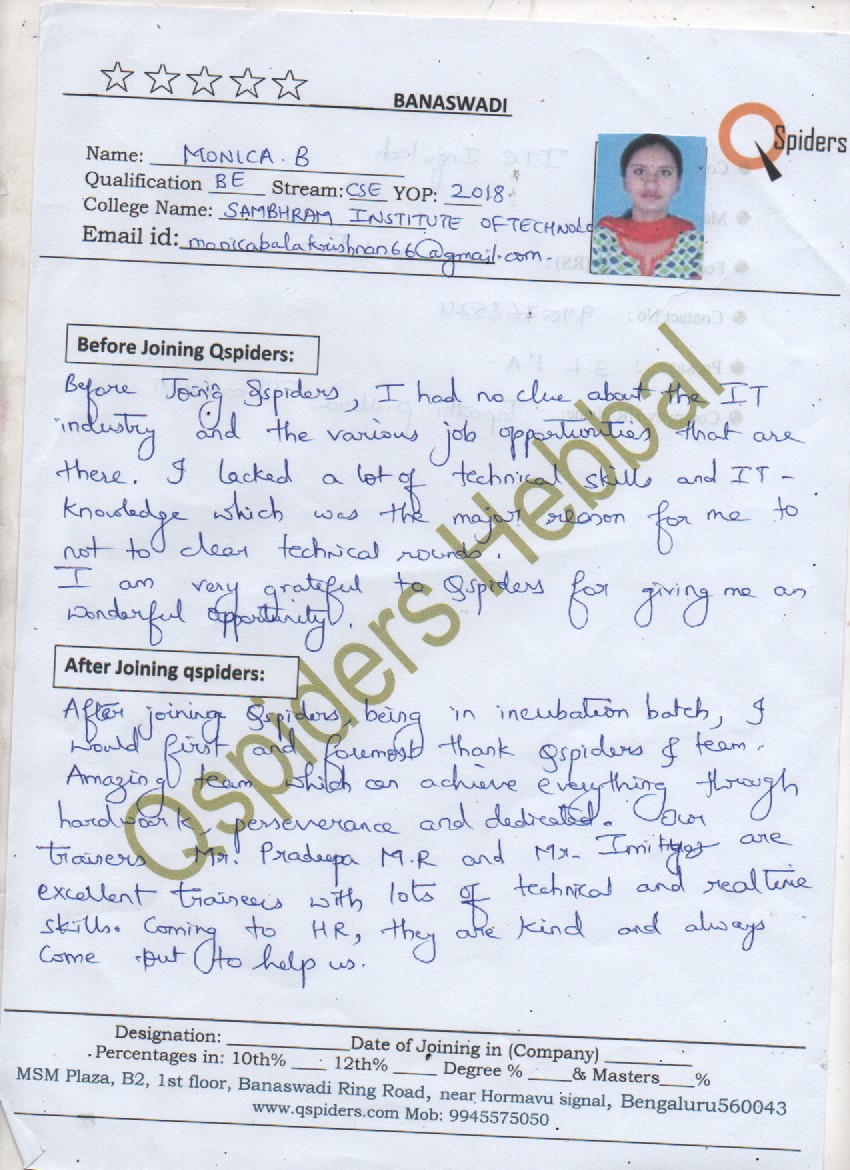 BANASWADI
Qspiders
Name: MONICA . B
Qualification BE Stream: CSE YOP: 2018
College Name: SAMBHRAM INSTITUTE OF TECHNOLO
Email id: monicabalakrishnan66@gmail.com.
Before Joining Qspiders:
Before Joing Qspiders, I had no clue about the IT
industry and the various job opportunities that are
there. I lacked a lot of technical skills and IT-
Knowledge which was the major reason for me to
not to clear technical rounds.
I am very grateful to Qspiders for giving me an
wonderful opportunity.
After Joining qspiders:
After joining Qspiders, being in incubation batch, I
would first and foremost thank Qspiders & team.
Amazing team which can achieve everything through
hardwork, perseverance and dedicated. Our
trainers Mr. Pradeepa M.R and Mr. are
excellent trainees with lots of technical and realtime
skills. Coming to HR, they are kind and always
come out to help us.
Qspiders Hebbal
Designation: Date of Joining in (Company)
Percentages in: 10th% 12th% Degree % & Masters %
MSM Plaza, B2, 1st floor, Banaswadi Ring Road, near Hormavu signal, Bengaluru560043
www.qspiders.com Mob: 9945575050